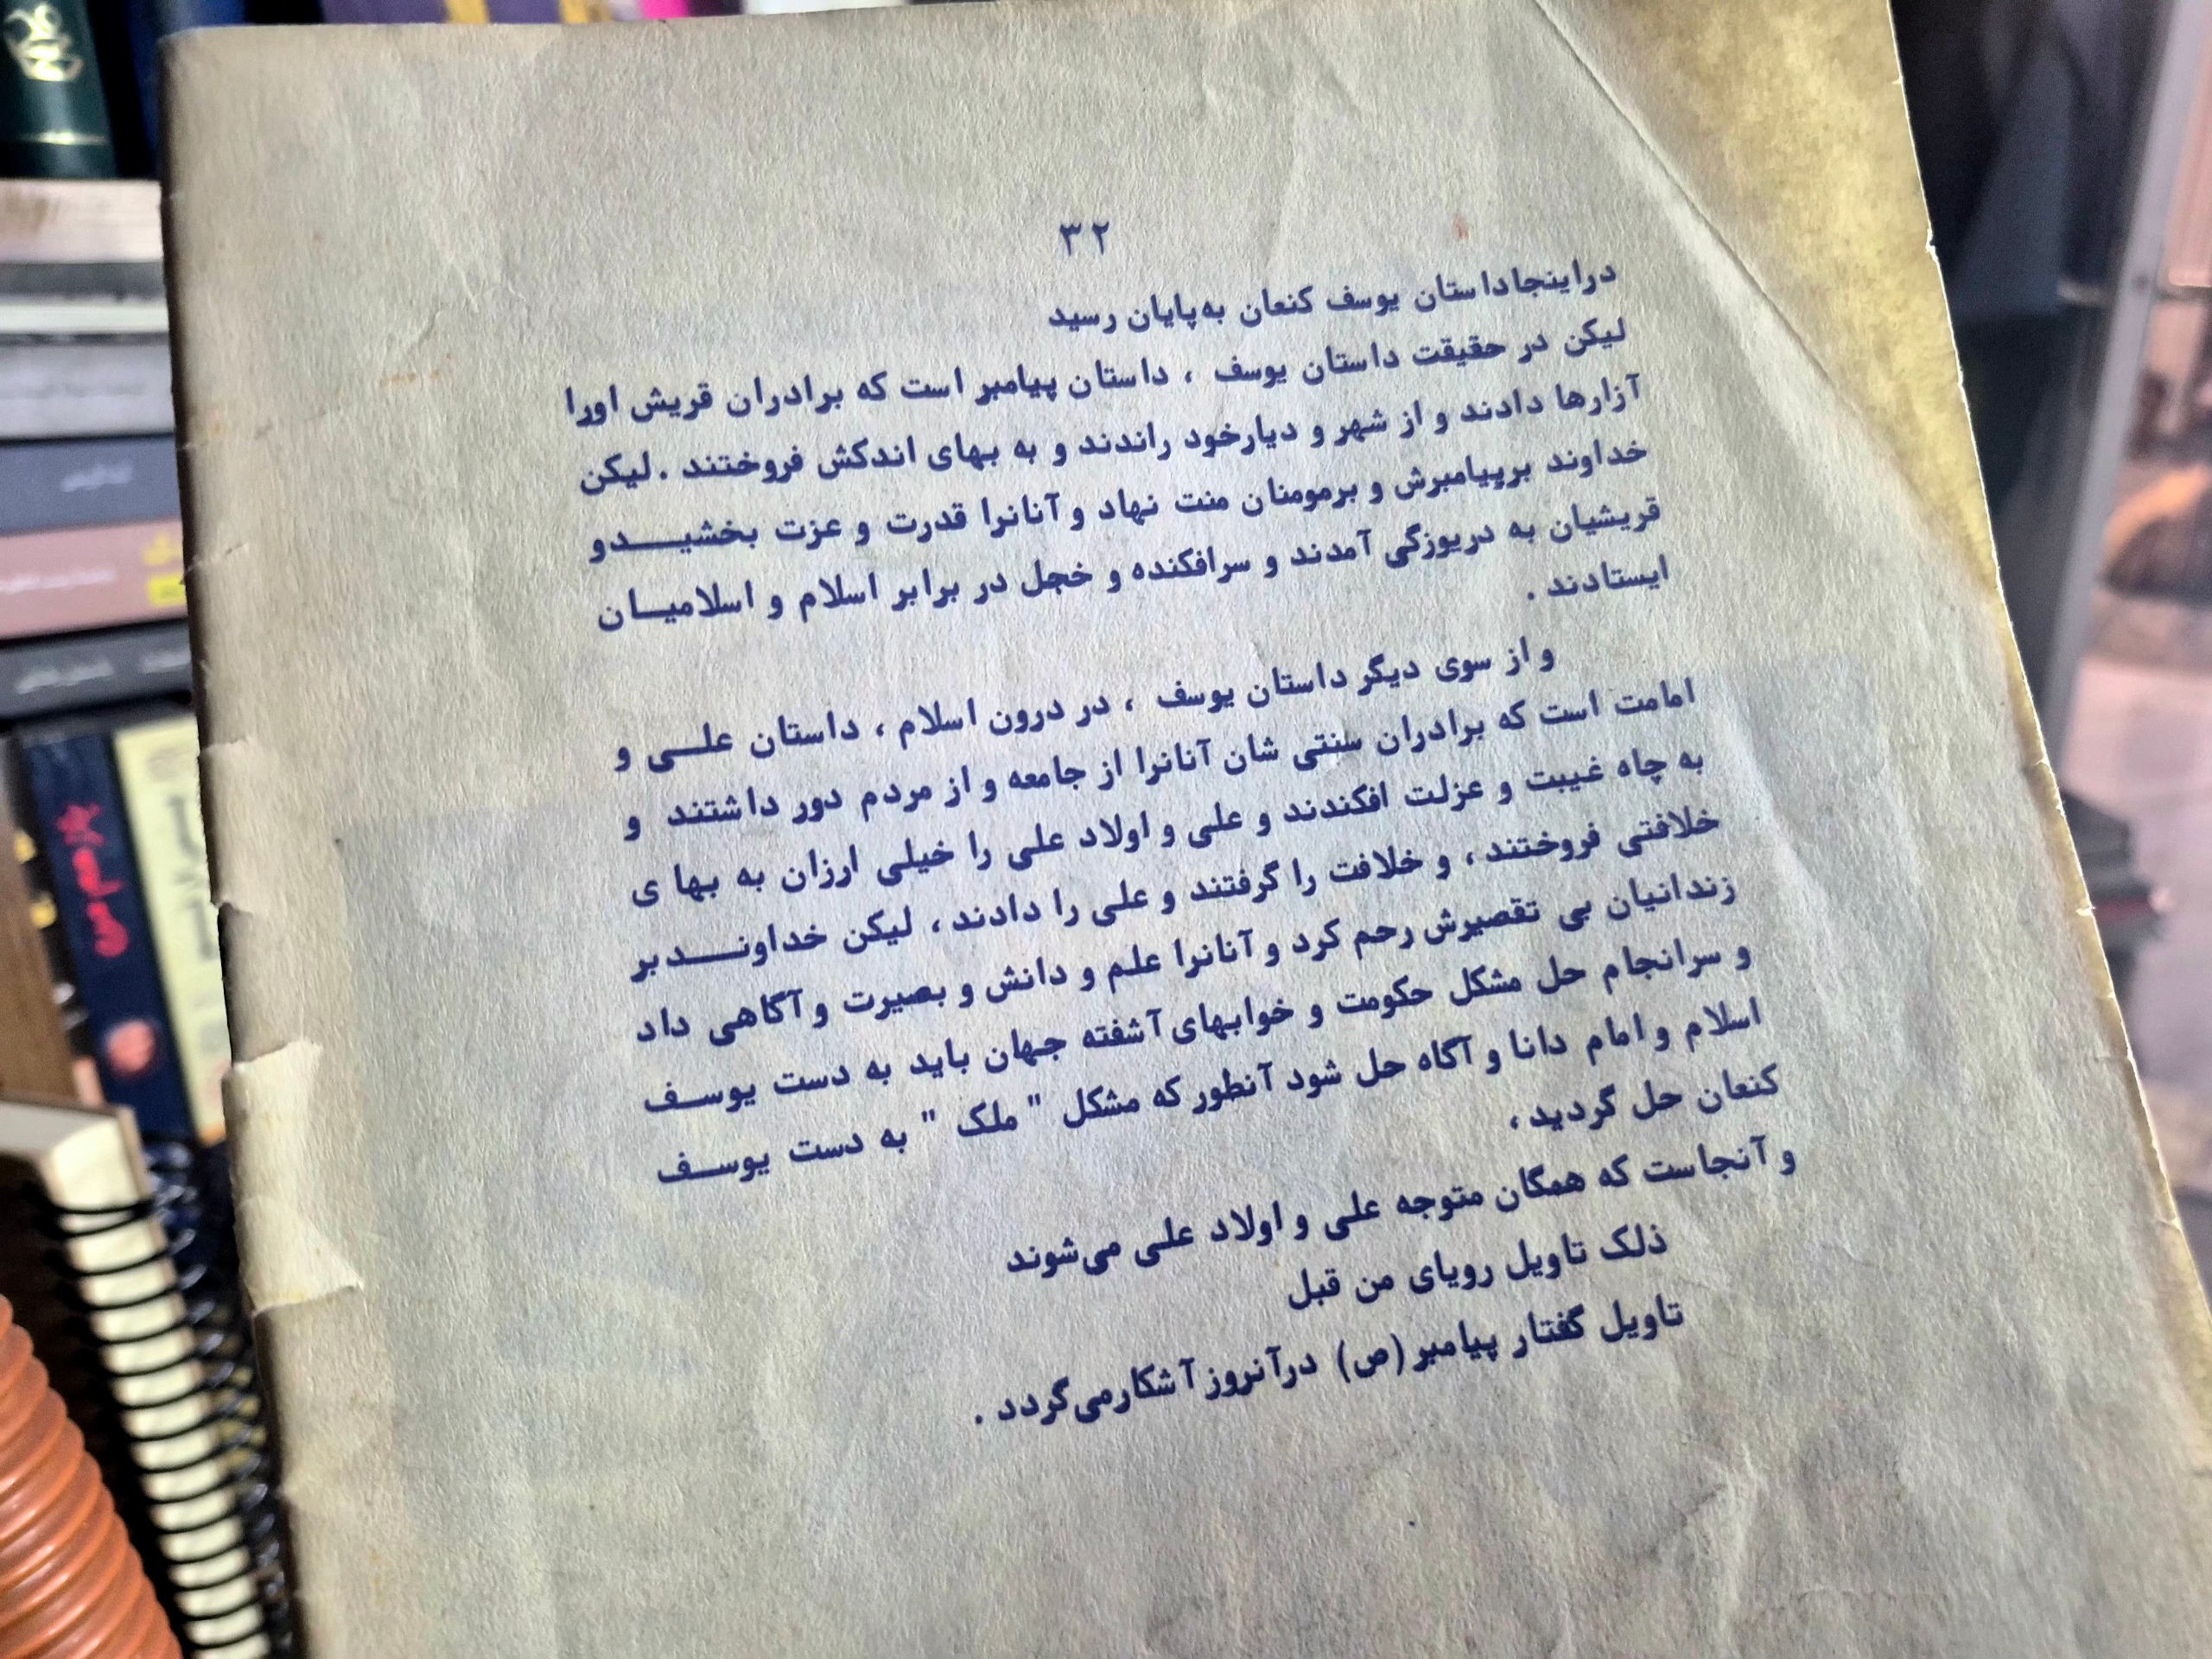 ۳۲
دراینجاداستان یوسف کنعان به‌پایان رسید
لیکن در حقیقت داستان یوسف ، داستان پیامبر است که برادران قریش اورا
آزارها دادند و از شهر و دیارخود راندند و به بهای اندکش فروختند . لیکن
خداوند برپیامبرش و برمومنان منت نهاد و آنانرا قدرت و عزت بخشیـــدو
قریشیان به دریوزگی آمدند و سرافکنده و خجل در برابر اسلام و اسلامیـان
ایستادند .
و از سوی دیگر داستان یوسف ، در درون اسلام ، داستان علــی و
امامت است که برادران سنتی شان آنانرا از جامعه و از مردم دور داشتند و
به چاه غیبت و عزلت افکندند و علی و اولاد علی را خیلی ارزان به بها ی
خلافتی فروختند ، و خلافت را گرفتند و علی را دادند ، لیکن خداونـــدبر
زندانیان بی تقصیرش رحم کرد و آنانرا علم و دانش و بصیرت و آگاهی داد
و سرانجام حل مشکل حکومت و خوابهای آشفته جهان باید به دست یوسـف
اسلام و امام دانا و آگاه حل شود آنطور که مشکل " ملک " به دست یوسـف
کنعان حل گردید ،
و آنجاست که همگان متوجه علی و اولاد علی می‌شوند
ذلک تاویل رویای من قبل
تاویل گفتار پیامبر (ص) درآنروز آشکارمی‌گردد .